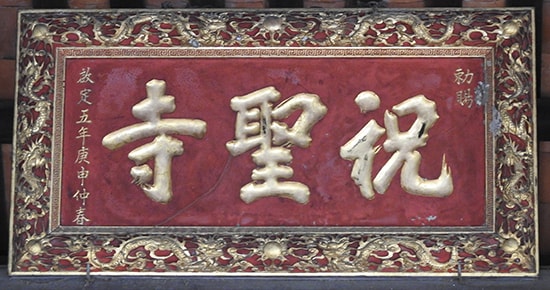 勅賜
祝聖寺
啟定五年庚申仲春